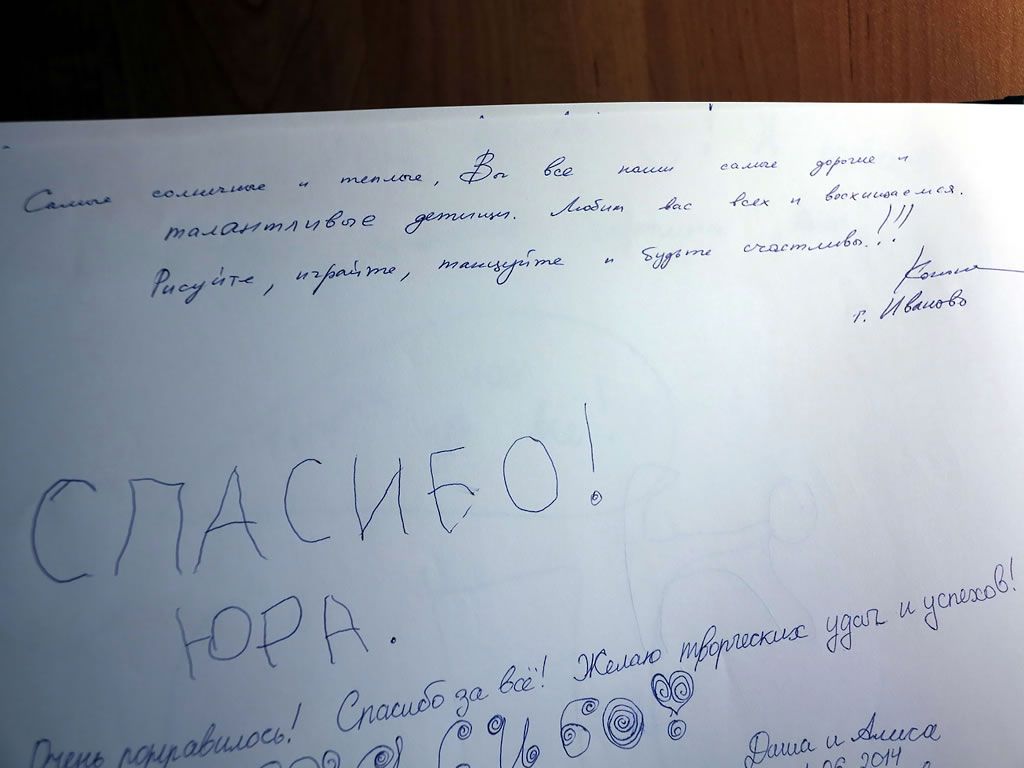 Самые солнечные и теплые, Вы все наши самые дорогие и
талантливые детищи. Любим вас всех и восхищаемся.
Рисуйте, играйте, танцуйте и будьте счастливы...!!!
г. Иваново
СПАСИБО!
ЮРА.
Очень понравилось! Спасибо за всё! Желаю творческих удач и успехов!
Даша и Алиса
06 2014